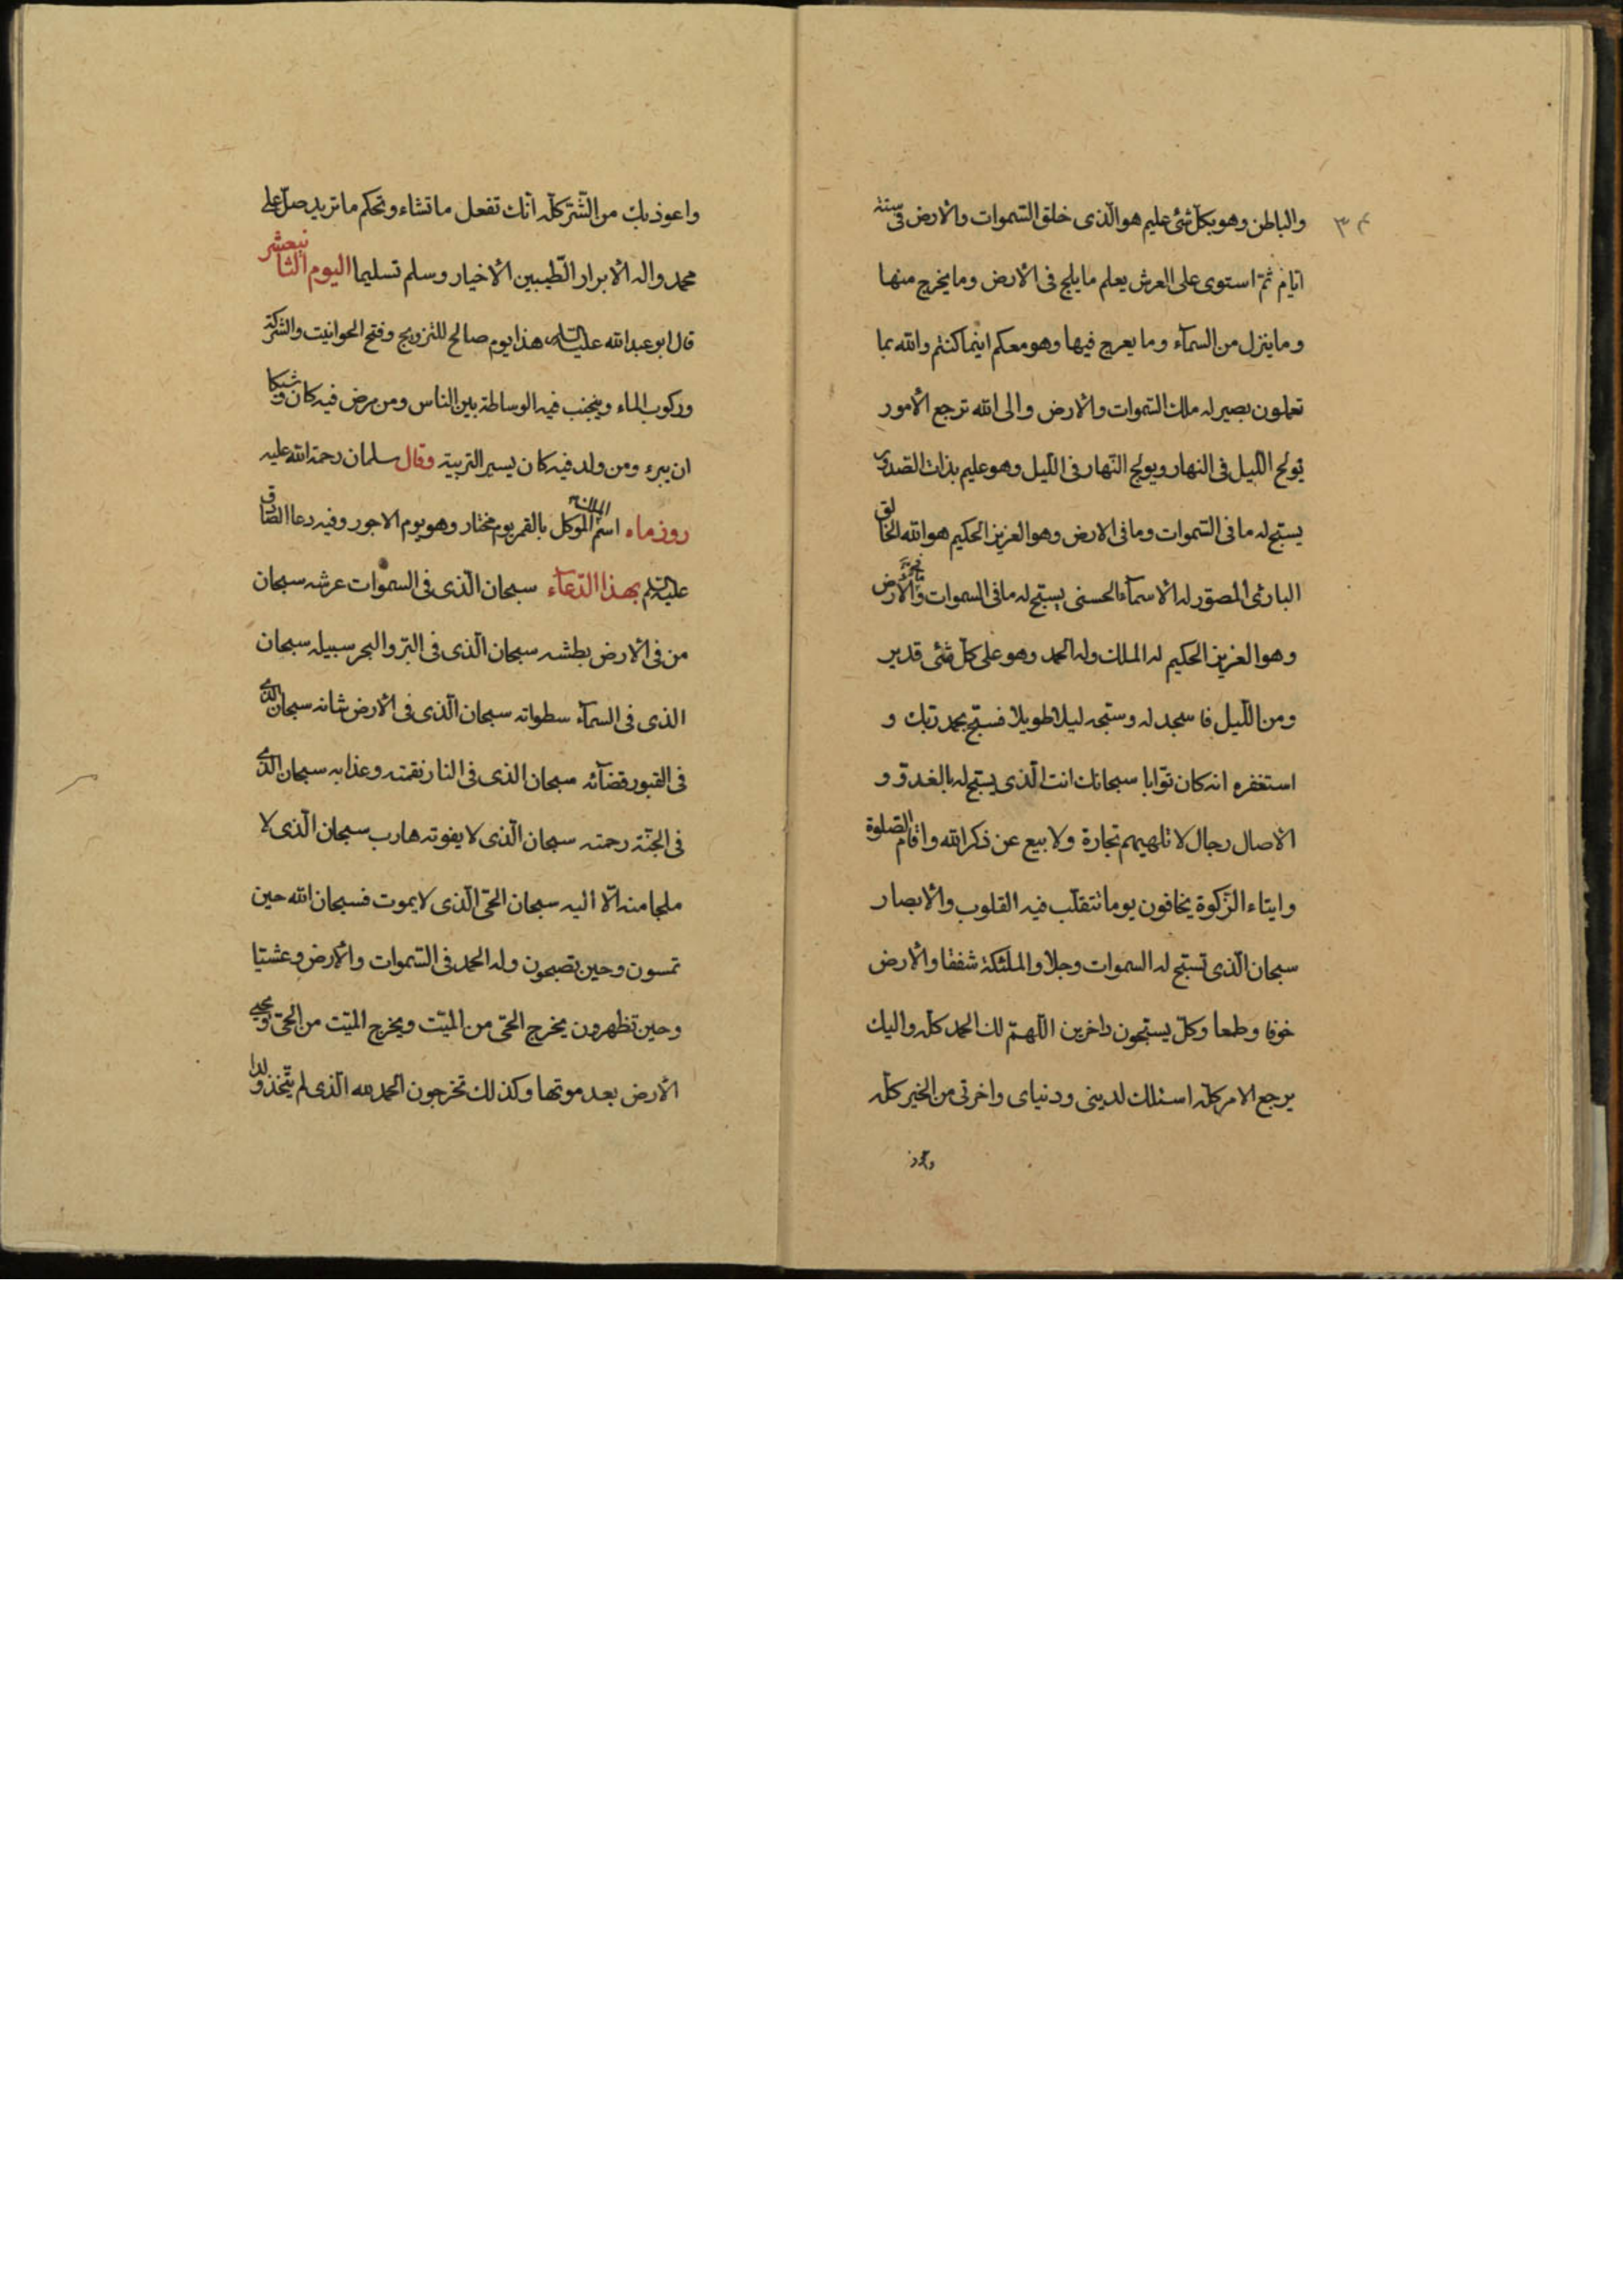 ٣٤
والباطن وهو بكلّ شئ عليم هو الّذى خلق السّموات والارض فى ستة
ايّام ثمّ استوى على العرش يعلم ما يلج فى الارض وما يخرج منها
وما ينزل من السمآء وما يعرج فيها وهو معكم اينما كنتم والله بما
تعملون بصير له ملك السّموات والارض والى الله ترجع الامور
يولج اللّيل فى النهار ويولج النّهار فى اللّيل وهو عليم بذات الصّدور
يسبّح له ما فى السّموات وما فى الارض وهو العزيز الحكيم هو الله الخالق
البارئ المصوّر له الاسمآء الحسنى يسبّح له ما فى السموات والارض
وهو العزيز الحكيم له الملك وله الحمد وهو على كلّ شئ قدير
ومن اللّيل فاسجد له وسبّحه ليلا طويلا فسبّح بحمد ربّك و
استغفره انه كان توّابا سبحانك انت الّذى يسبّح له بالغدوّ و
الاصال رجال لا تلهيهم تجارة ولا بيع عن ذكر الله واقام الصّلوة
وايتاء الزّكوة يخافون يوما تتقلّب فيه القلوب والابصار
سبحان الّذى تسبّح له السموات وجلا والملئكة شفقا والارض
خوفا وطمعا وكلّ يسبّحون داخرين اللّهمّ لك الحمد كلّه واليك
يرجع الامر كلّه اسئلك لدينى ودنياى واخرتى من الخير كلّه
واعوذ
واعوذ بك من الشّرّ كلّه انّك تفعل ما تشاء وتحكم ما تريد صلّ على
محمد واله الابرار الطّيبين الاخيار وسلم تسليما اليوم الثانيعشر
قال ابو عبد الله عليه السلم هذا يوم صالح للتزويج وفتح الحوانيت والشركة
وركوب الماء ويجنب فيه الوساطة بين الناس ومن مرض فيه كان وشيكا
ان يبرء ومن ولد فيه كان يسير التربية وقال سلمان رحمة الله عليه
روز ماه اسم الملك الموكل بالقمر يوم مختار وهو يوم الاجور وفيه دعا الصّادق
عليه السلم بهذا الدّعآء سبحان الّذى فى السموات عرشه سبحان
من فى الارض بطشه سبحان الّذى فى البرّ والبحر سبيله سبحان
الذى فى السمآء سطواته سبحان الّذى فى الارض شانه سبحان الّذى
فى القبور قضآئه سبحان الذى فى النار نقمته وعذابه سبحان الّذى
فى الجنّة رحمته سبحان الّذى لا يفوته هارب سبحان الّذى لا
ملجا منه الّا اليه سبحان الحىّ الّذى لا يموت فسبحان الله حين
تمسون وحين تصبحون وله الحمد فى السّموات والارض وعشيّا
وحين تظهرون يخرج الحىّ من الميّت ويخرج الميّت من الحىّ ويحيى
الارض بعد موتها وكذلك تخرجون الحمد لله الّذى لم يتّخذ ولدا